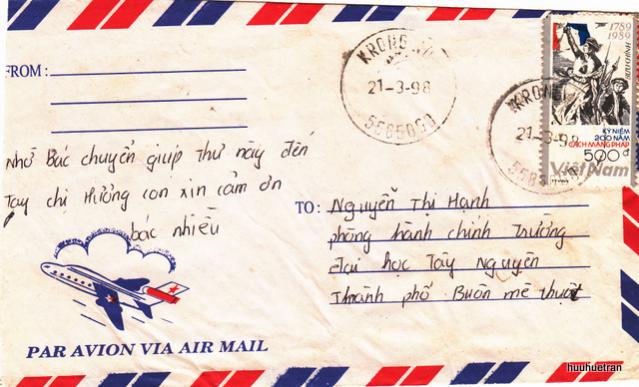 FROM:
Nhờ Bác chuyển giúp thư này đến
Tay chị Hương con xin cảm ơn
bác nhiều
PAR AVION VIA AIR MAIL
KRONG
21-3-98
1789
1989
KỶ NIỆM
200 NĂM
CÁCH MẠNG PHÁP
500đ
Việt Nam
KRONG
21-3-98
TO: Nguyễn Thị Hạnh
phòng hành chính Trường
đại học Tây Nguyên
Thành phố Buôn mê thuột
huuhuetran